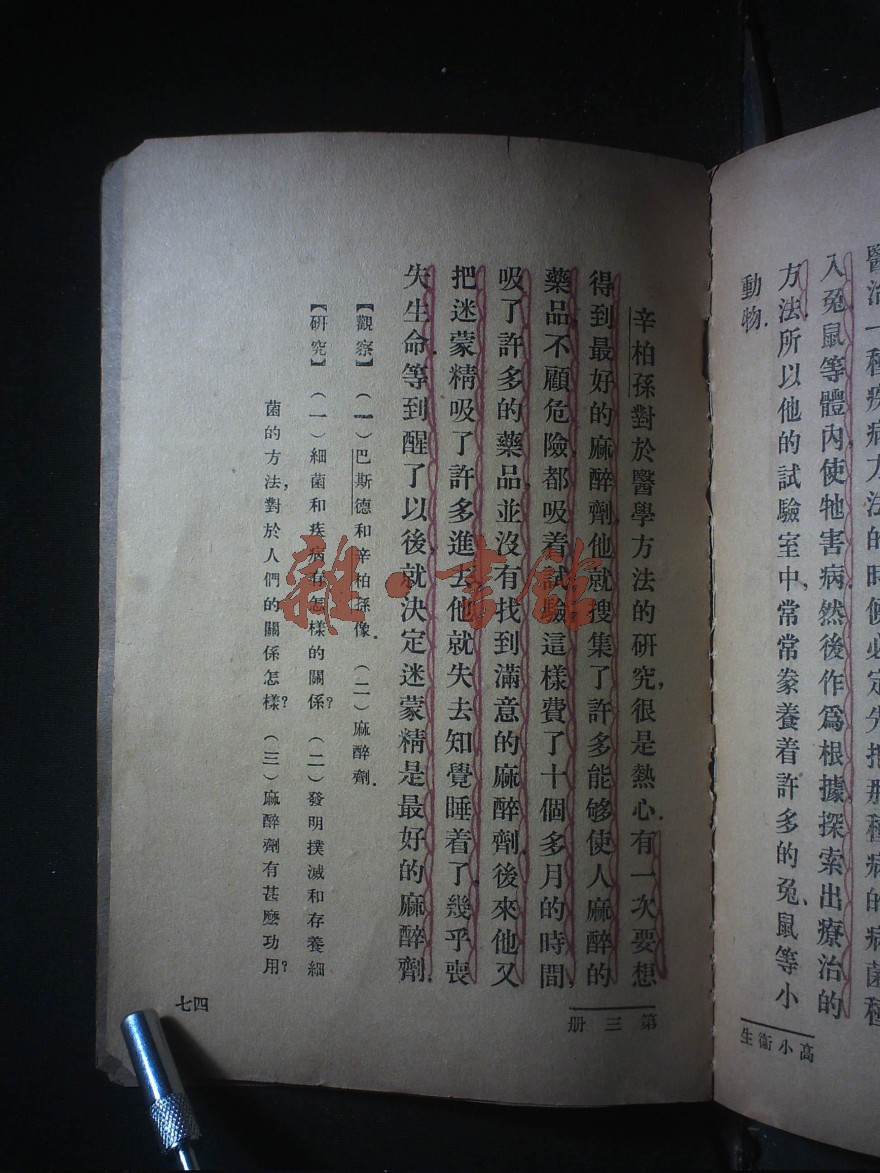 醫治一種疾病方法的時候必定先把那種病的病菌種
入兔鼠等體內使牠害病,然後作爲根據探索出療治的
方法.所以他的試驗室中,常常豢養着許多的兔、鼠等小
動物.
高小衞生
辛柏孫對於醫學方法的研究,很是熱心.有一次要想
得到最好的麻醉劑,他就搜集了許多能够使人麻醉的
藥品,不顧危險,都吸着試驗.這樣費了十個多月的時間,
吸了許多的藥品,並沒有找到滿意的麻醉劑.後來他又
把迷蒙精吸了許多進去,他就失去知覺睡着了,幾乎喪
失生命.等到醒了以後,就決定迷蒙精是最好的麻醉劑.
【觀察】(一)巴斯德和辛柏孫像.(二)麻醉劑.
【研究】(一)細菌和疾病有怎樣的關係?(二)發明撲滅和存養細
菌的方法,對於人們的關係怎樣?(三)麻醉劑有甚麼功用?
第三册
七四
雜·書館